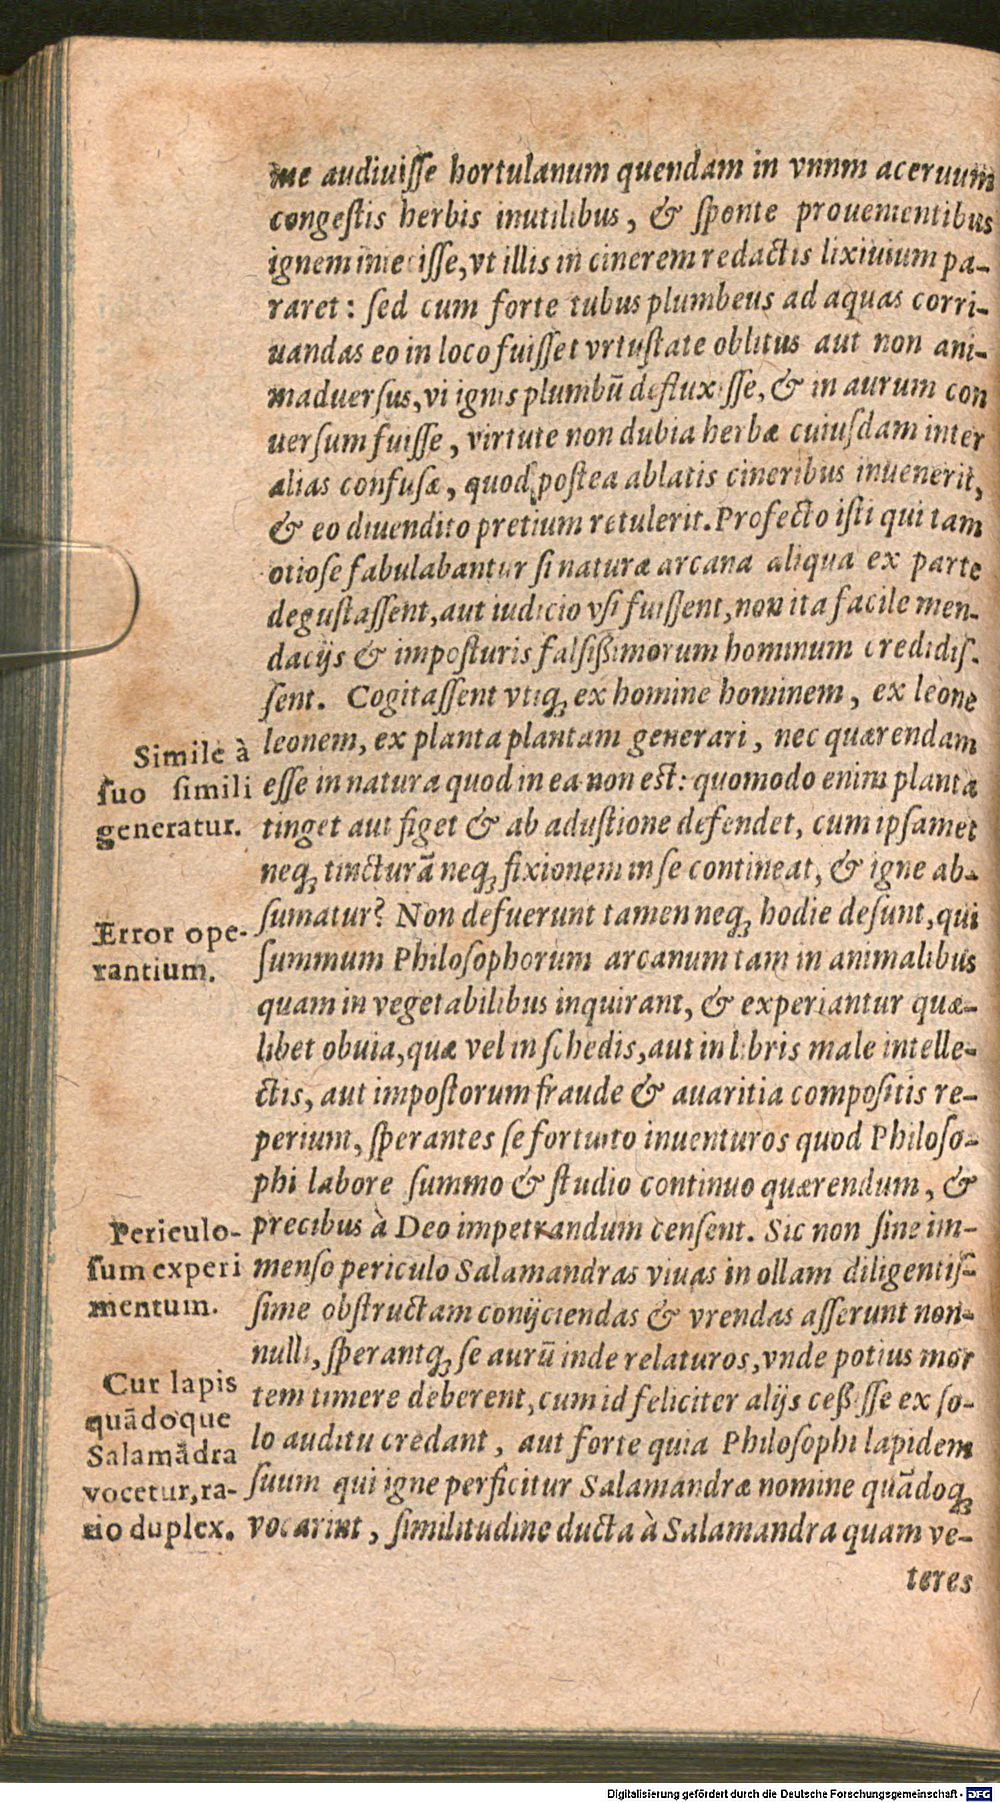 me audiuisse hortulanum quendam in vnnm aceruum
congestis herbis inutilibus, & sponte prouenientibus
ignem iniecisse, vt illis in cinerem redactis lixiuium pa-
raret: sed cum forte tubus plumbeus ad aquas corri-
uandas eo in loco fuisset vetustate oblitus aut non ani-
maduersus, vi ignis plumbū defluxisse, & in aurum con
uersum fuisse, virtute non dubia herbæ cuiusdam inter
alias confusæ, quod postea ablatis cineribus inuenerit,
& eo diuendito pretium retulerit. Profecto isti qui tam
otiose fabulabantur si naturæ arcana aliqua ex parte
degustassent, aut iudicio vsi fuissent, non ita facile men-
dacijs & imposturis falsißimorum hominum credidis-
sent. Cogitassent vtiq; ex homine hominem, ex leone
leonem, ex planta plantam generari, nec quærendam
esse in natura quod in ea non est: quomodo enim planta
tinget aut figet & ab adustione defendet, cum ipsamet
neq; tincturā neq; fixionem in se contineat, & igne ab-
sumatur? Non defuerunt tamen neq; hodie desunt, qui
summum Philosophorum arcanum tam in animalibus
quam in vegetabilibus inquirant, & experiantur quæ-
libet obuia, quæ vel in schedis, aut in libris male intelle-
ctis, aut impostorum fraude & auaritia compositis re-
periunt, sperantes se fortuito inuenturos quod Philoso-
phi labore summo & studio continuo quærendum, &
precibus à Deo impetrandum censent. Sic non sine im-
menso periculo Salamandras viuas in ollam diligentis-
sime obstructam conijciendas & vrendas asserunt non-
nulli, sperantq; se aurū inde relaturos, vnde potius mor
tem timere deberent, cum id feliciter alijs ceßisse ex so-
lo auditu credant, aut forte quia Philosophi lapidem
suum qui igne perficitur Salamandræ nomine quādoq;
vocarint, similitudine ducta à Salamandra quam ve-
teres
Simile à
suo simili
generatur.
Error ope-
rantium.
Periculo-
sum experi
mentum.
Cur lapis
quādoque
Salamādra
vocetur, ra-
tio duplex.
Digitalisierung gefördert durch die Deutsche Forschungsgemeinschaft - DFG